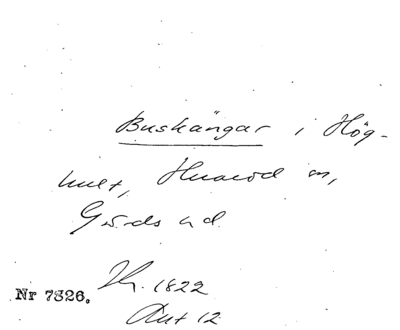 Buskängar i Hög-
hult, Huaröd sn,
Gärds hd.
Nr 7326.
1822
Akt 12